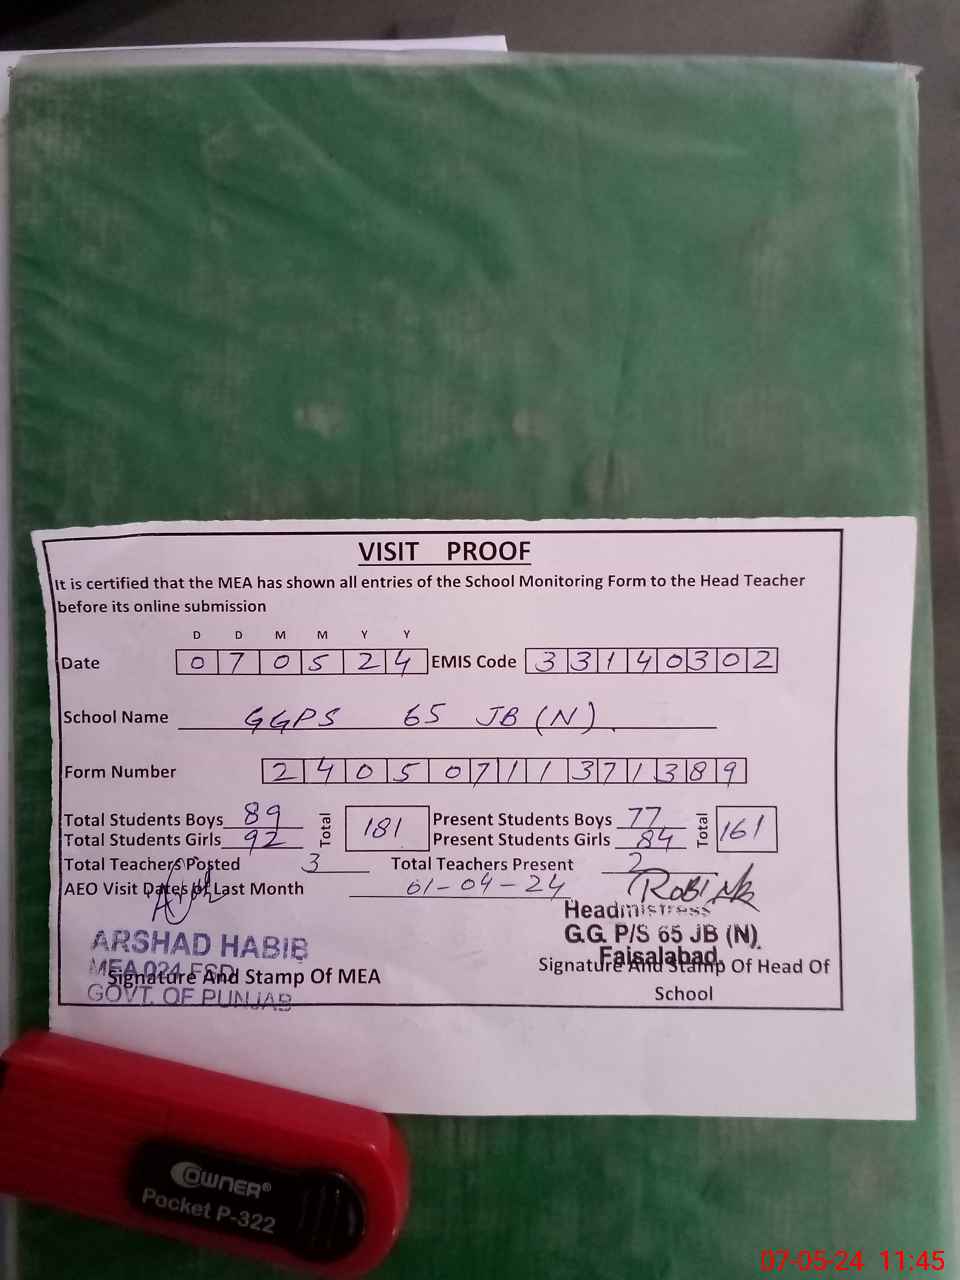 VISIT PROOF
It is certified that the MEA has shown all entries of the School Monitoring Form to the Head Teacher
before its online submission
D D M M Y Y
Date 0 7 0 5 2 4 EMIS Code 3 3 1 4 0 3 0 2
School Name GGPS 65 JB (N).
Form Number 2 4 0 5 0 7 1 1 3 7 1 3 8 9
Total Students Boys 89 Total 181 Present Students Boys 77 Total 161
Total Students Girls 92 Present Students Girls 84
Total Teachers Posted 3 Total Teachers Present 2
AEO Visit Dates of Last Month 01-04-24
Headmistress
ARSHAD HABIB G.G. P/S 65 JB (N)
MEA 024 FSD Faisalabad.
Signature And Stamp Of MEA Signature And Stamp Of Head Of
GOVT. OF PUNJAB School
OWNER®
Pocket P-322
07-05-24 11:45